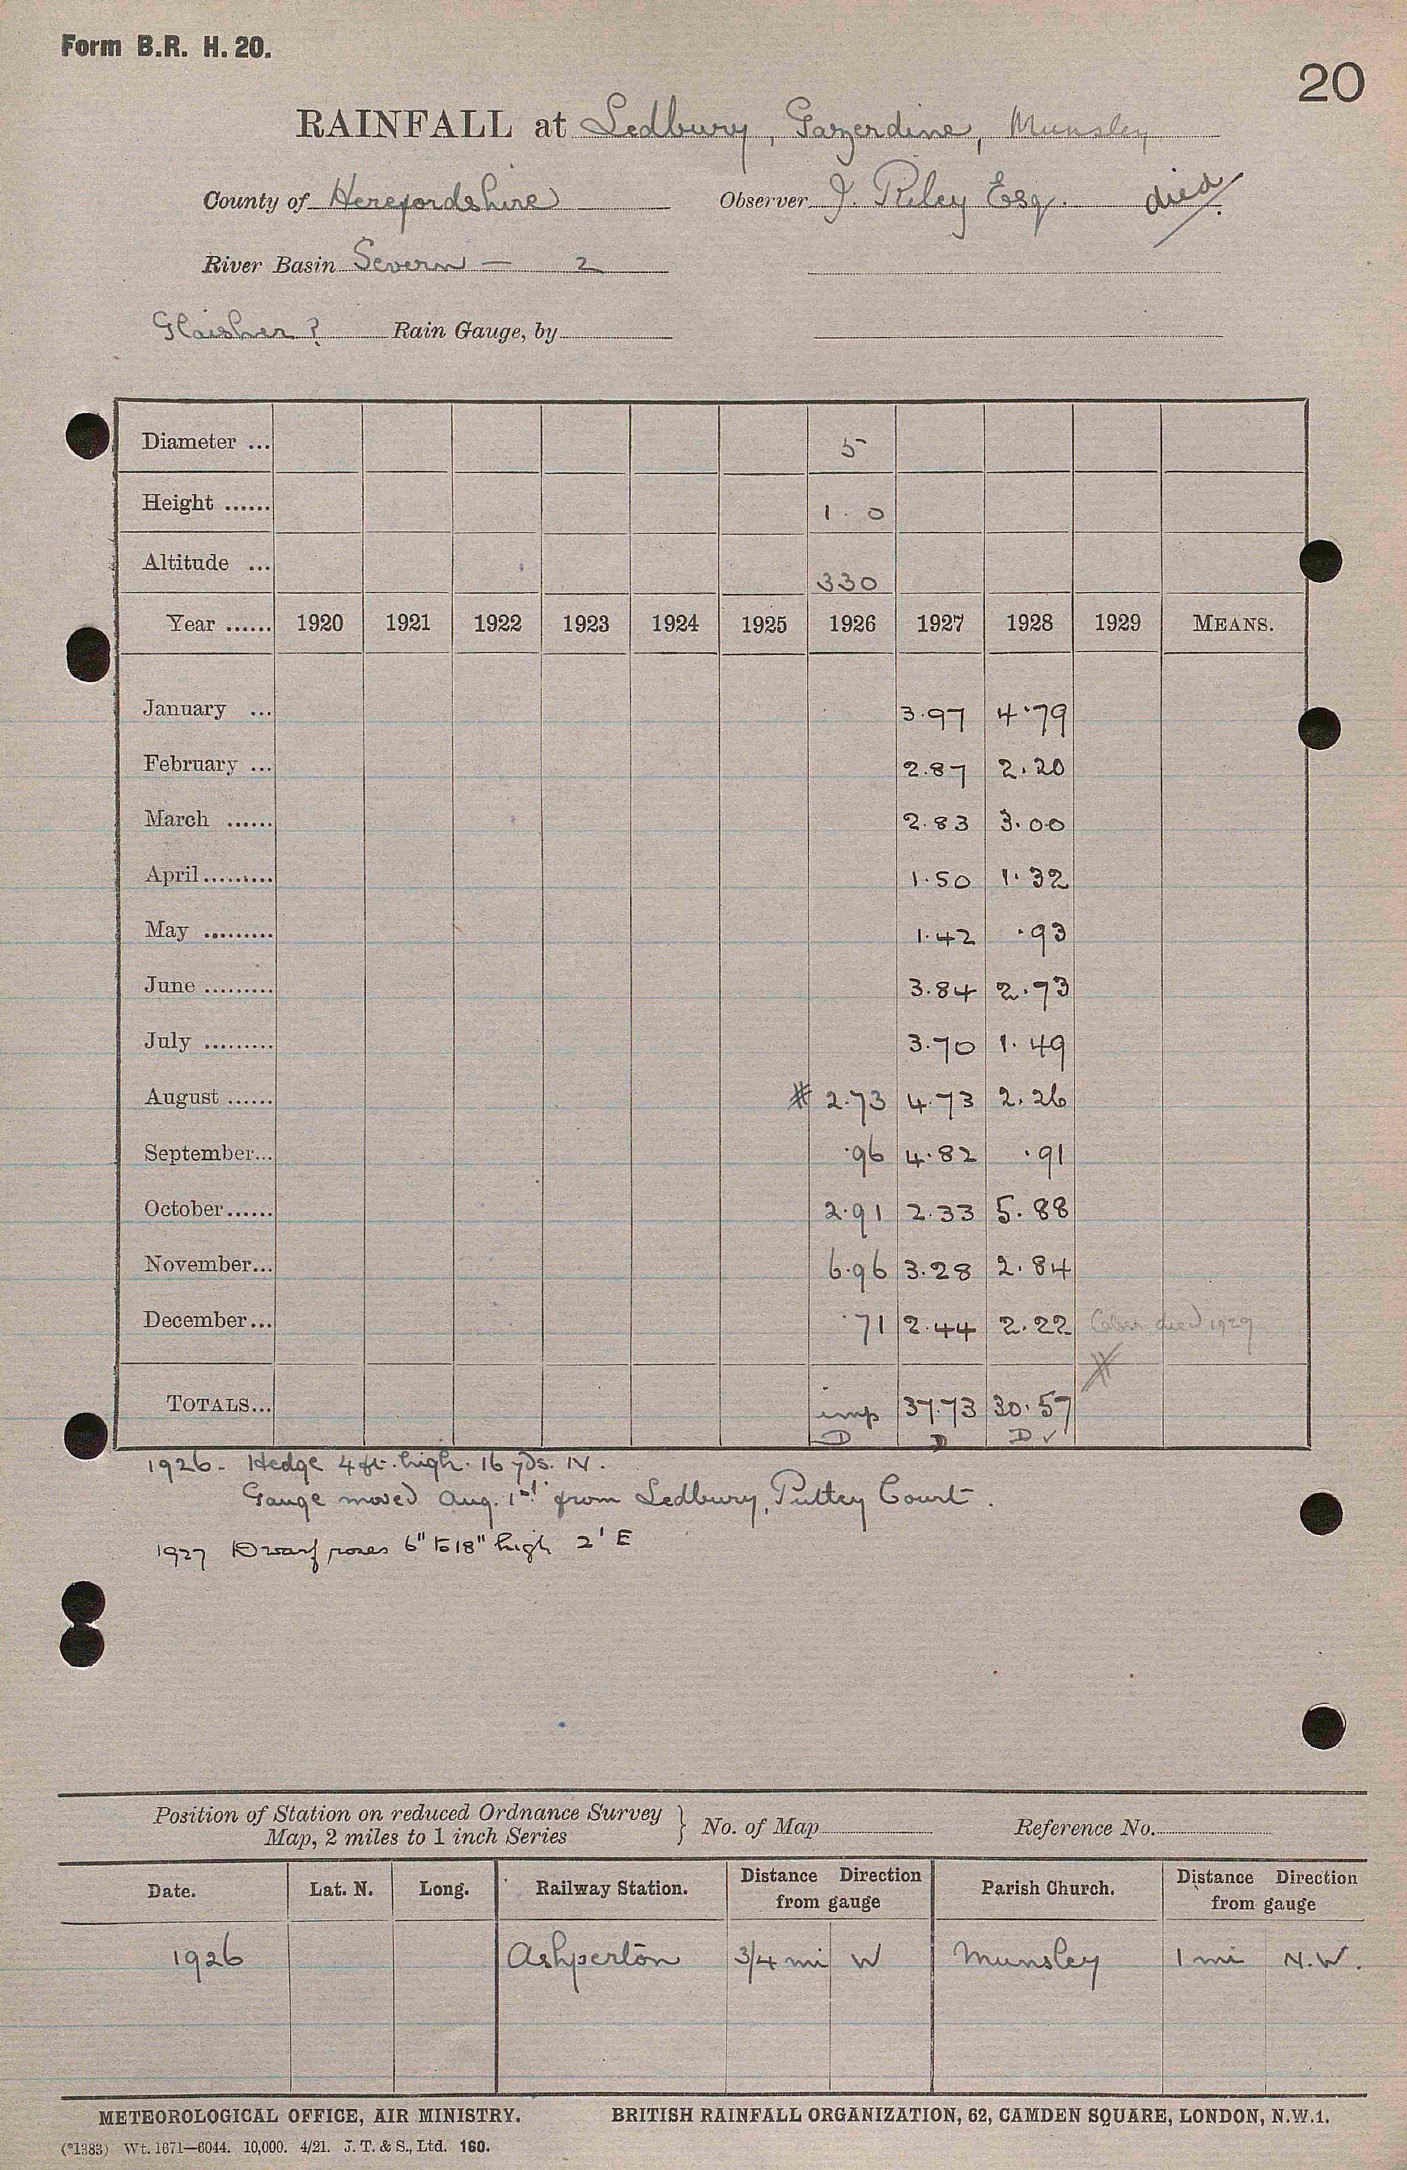 Form B.R. H. 20.
20
RAINFALL at Ledbury, Gazerdine, Munsley
County of Herefordshire Observer J. Riley Esq. died
River Basin Severn — 2
Glaisher? Rain Gauge, by
Diameter ... 5
Height ...... 1. 0
Altitude ... 330
Year ...... 1920 1921 1922 1923 1924 1925 1926 1927 1928 1929 MEANS.
January ... 3.97 4.79
February ... 2.87 2.20
March ...... 2.83 3.00
April ......... 1.50 1.32
May ......... 1.42 .93
June ......... 3.84 2.73
July ......... 3.70 1.49
August ...... # 2.73 4.73 2.26
September... .96 4.82 .91
October...... 2.91 2.33 5.88
November... 6.96 3.28 2.84
December... .71 2.44 2.22 (obsr died 1929
#
TOTALS... imp 37.73 30.57
D D D ✓
1926 - Hedge 4 ft. high. 16 yds. N.
Gauge moved Aug. 1st from Ledbury, Putley Court.
1927 Dwarf roses 6" to 18" high 2' E
Position of Station on reduced Ordnance Survey Map, 2 miles to 1 inch Series } No. of Map Reference No.
Date. Lat. N. Long. Railway Station. Distance Direction from gauge Parish Church. Distance Direction from gauge
1926 Ashperton 3/4 mi W Munsley 1 mi N.W.
METEOROLOGICAL OFFICE, AIR MINISTRY. BRITISH RAINFALL ORGANIZATION, 62, CAMDEN SQUARE, LONDON, N.W.1.
(*1383) Wt. 1671—6044. 10,000. 4/21. J. T. & S., Ltd. 160.